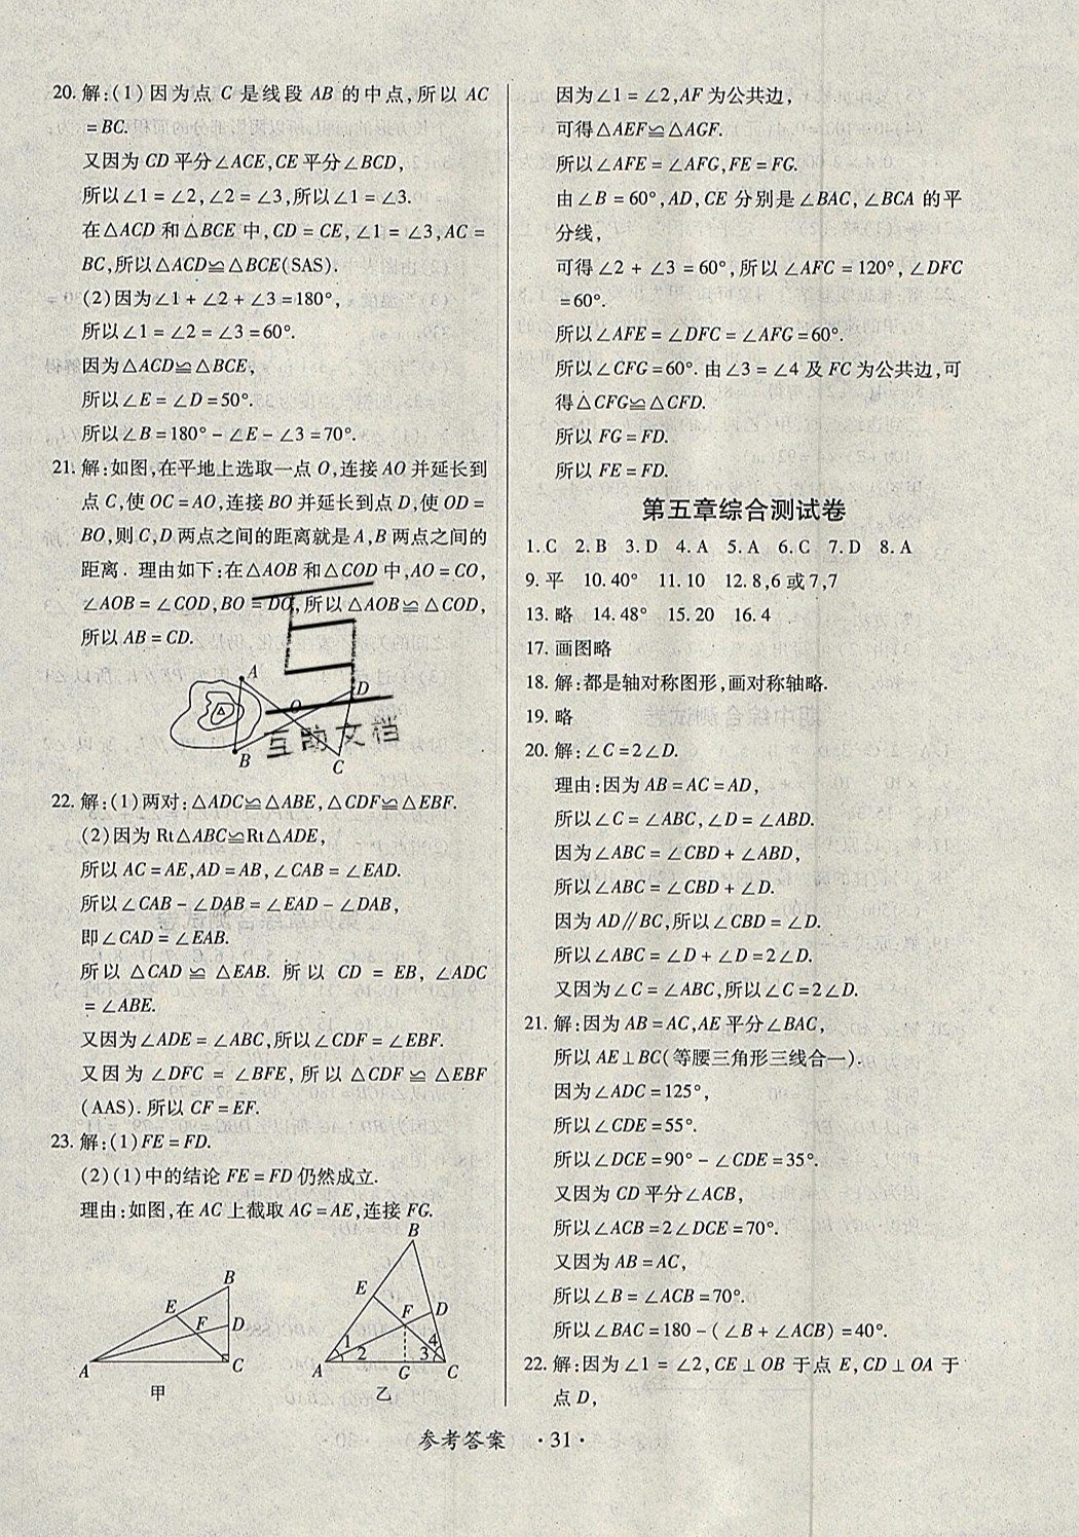 20. 解:(1)因为点 C 是线段 AB 的中点,所以 AC
=BC.
又因为 CD 平分∠ACE,CE 平分∠BCD,
所以∠1=∠2,∠2=∠3,所以∠1=∠3.
在△ACD 和△BCE 中,CD=CE,∠1=∠3,AC=
BC,所以△ACD≌△BCE(SAS).
(2)因为∠1+∠2+∠3=180°,
所以∠1=∠2=∠3=60°.
因为△ACD≌△BCE,
所以∠E=∠D=50°.
所以∠B=180°-∠E-∠3=70°.
21. 解:如图,在平地上选取一点 O,连接 AO 并延长到
点 C,使 OC=AO,连接 BO 并延长到点 D,使 OD=
BO,则 C,D 两点之间的距离就是 A,B 两点之间的
距离. 理由如下:在△AOB 和△COD 中,AO=CO,
∠AOB=∠COD,BO=DO,所以△AOB≌△COD,
所以 AB=CD.
A
D
O
B
C
互助文档
22. 解:(1)两对:△ADC≌△ABE,△CDF≌△EBF.
(2)因为 Rt△ABC≌Rt△ADE,
所以 AC=AE,AD=AB,∠CAB=∠EAD.
所以∠CAB-∠DAB=∠EAD-∠DAB,
即∠CAD=∠EAB.
所以 △CAD≌△EAB. 所以 CD=EB,∠ADC
=∠ABE.
又因为∠ADE=∠ABC,所以∠CDF=∠EBF.
又因为∠DFC=∠BFE,所以△CDF≌△EBF
(AAS). 所以 CF=EF.
23. 解:(1)FE=FD.
(2)(1)中的结论 FE=FD 仍然成立.
理由:如图,在 AC 上截取 AG=AE,连接 FG.
B
E
F
D
A
C
甲
B
E
F
D
1
2
4
3
A
G
C
乙
因为∠1=∠2,AF 为公共边,
可得△AEF≌△AGF.
所以∠AFE=∠AFG,FE=FG.
由∠B=60°,AD,CE 分别是∠BAC,∠BCA 的平
分线,
可得∠2+∠3=60°,所以∠AFC=120°,∠DFC
=60°.
所以∠AFE=∠DFC=∠AFG=60°.
所以∠CFG=60°. 由∠3=∠4 及 FC 为公共边,可
得△CFG≌△CFD.
所以 FG=FD.
所以 FE=FD.
第五章综合测试卷
1. C 2. B 3. D 4. A 5. A 6. C 7. D 8. A
9. 平 10. 40° 11. 10 12. 8,6 或 7,7
13. 略 14. 48° 15. 20 16. 4
17. 画图略
18. 解:都是轴对称图形,画对称轴略.
19. 略
20. 解:∠C=2∠D.
理由:因为 AB=AC=AD,
所以∠C=∠ABC,∠D=∠ABD.
因为∠ABC=∠CBD+∠ABD,
所以∠ABC=∠CBD+∠D.
因为 AD∥BC,所以∠CBD=∠D.
所以∠ABC=∠D+∠D=2∠D.
又因为∠C=∠ABC,所以∠C=2∠D.
21. 解:因为 AB=AC,AE 平分∠BAC,
所以 AE⊥BC(等腰三角形三线合一).
因为∠ADC=125°,
所以∠CDE=55°.
所以∠DCE=90°-∠CDE=35°.
又因为 CD 平分∠ACB,
所以∠ACB=2∠DCE=70°.
又因为 AB=AC,
所以∠B=∠ACB=70°.
所以∠BAC=180-(∠B+∠ACB)=40°.
22. 解:因为∠1=∠2,CE⊥OB 于点 E,CD⊥OA 于
点 D,
参考答案 ·31·